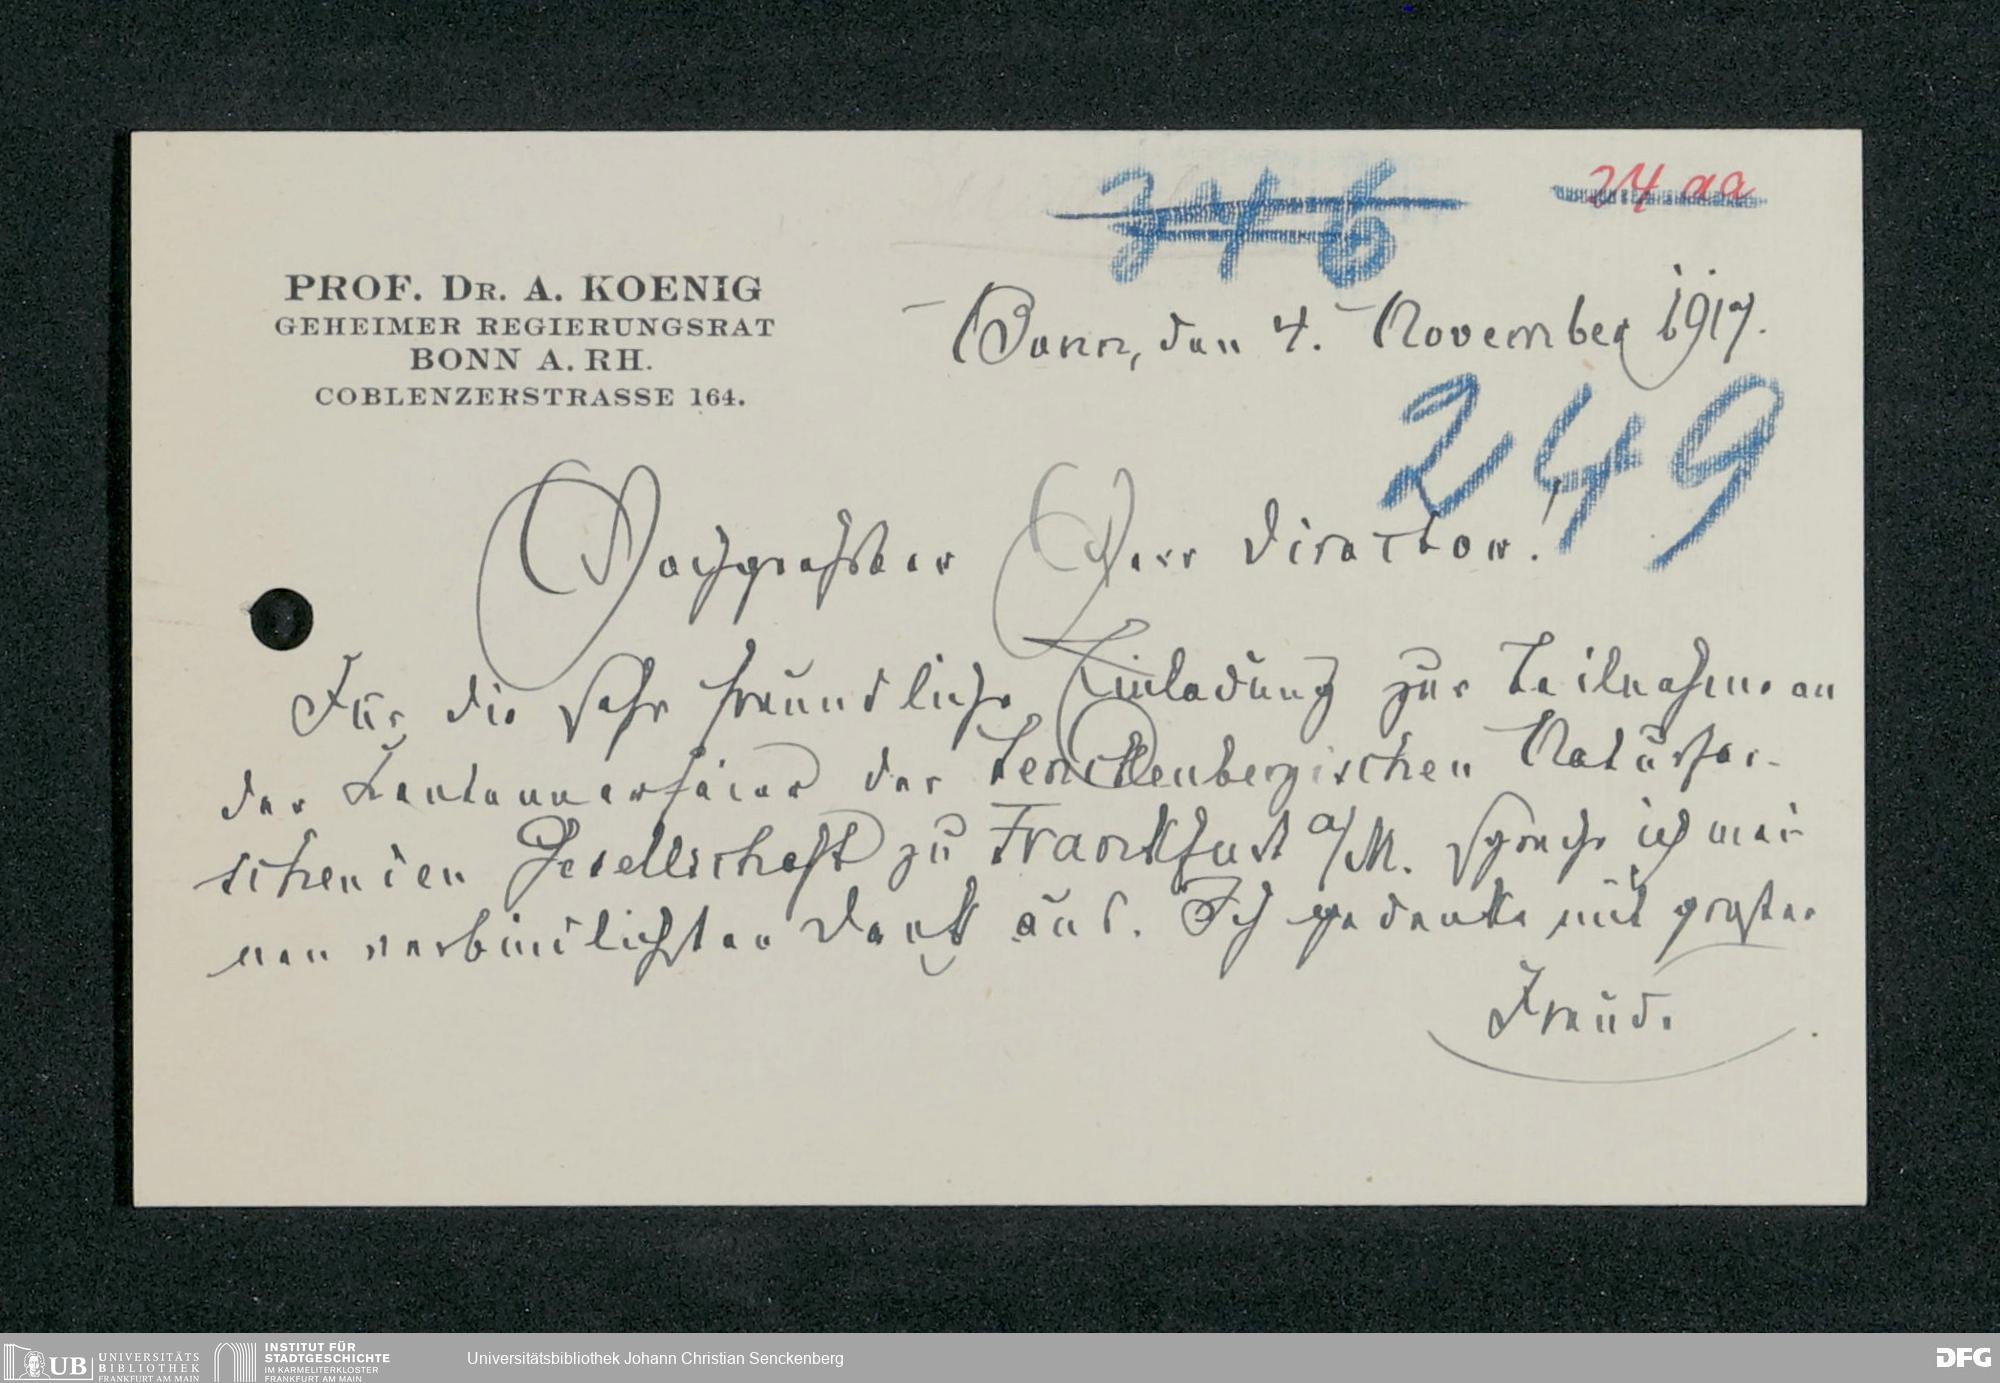 346
24 aa
PROF. DR. A. KOENIG
GEHEIMER REGIERUNGSRAT
BONN A. RH.
COBLENZERSTRASSE 164.
Bonn, den 4. November 1917.
249
Hochgeehrter Herr Director!
Für die sehr freundliche Einladung zur Teilnahme an
der Centennarfeier der Senckenbergischen Naturfor-
schenden Gesellschaft zu Frankfurt a/M. spreche ich mei-
nen verbindlichsten Dank aus. Ich gedenke mit grosser
Freude
UB UNIVERSITÄTS
BIBLIOTHEK
FRANKFURT AM MAIN
INSTITUT FÜR
STADTGESCHICHTE
IM KARMELITERKLOSTER
FRANKFURT AM MAIN
Universitätsbibliothek Johann Christian Senckenberg
DFG